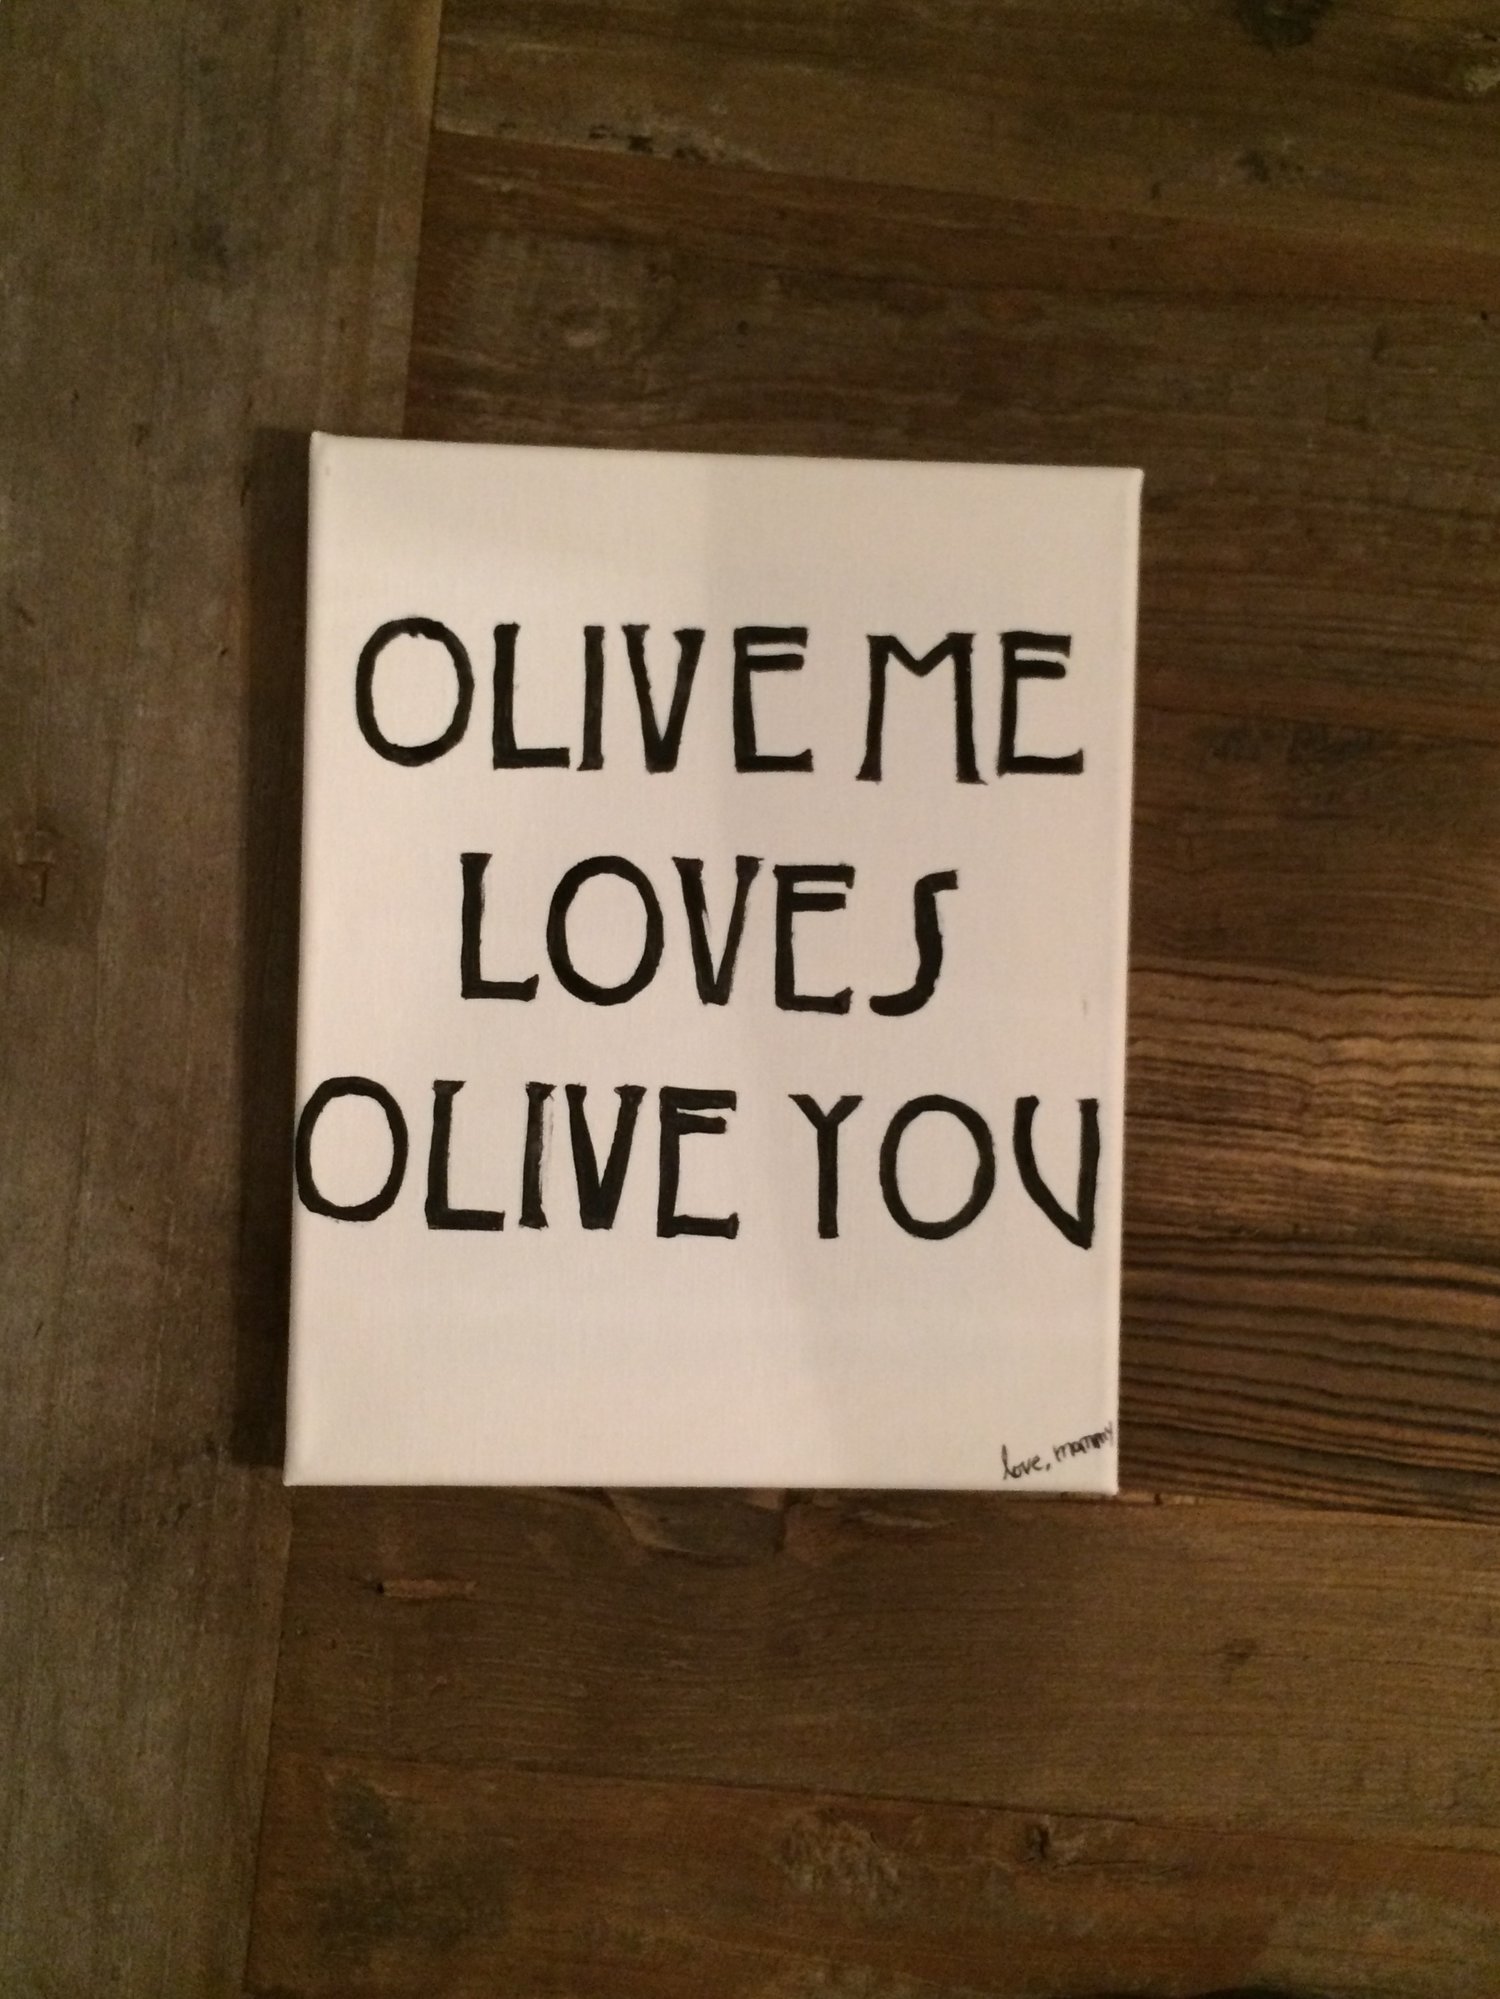 OLIVE ME
LOVES
OLIVE YOU
love, mommy